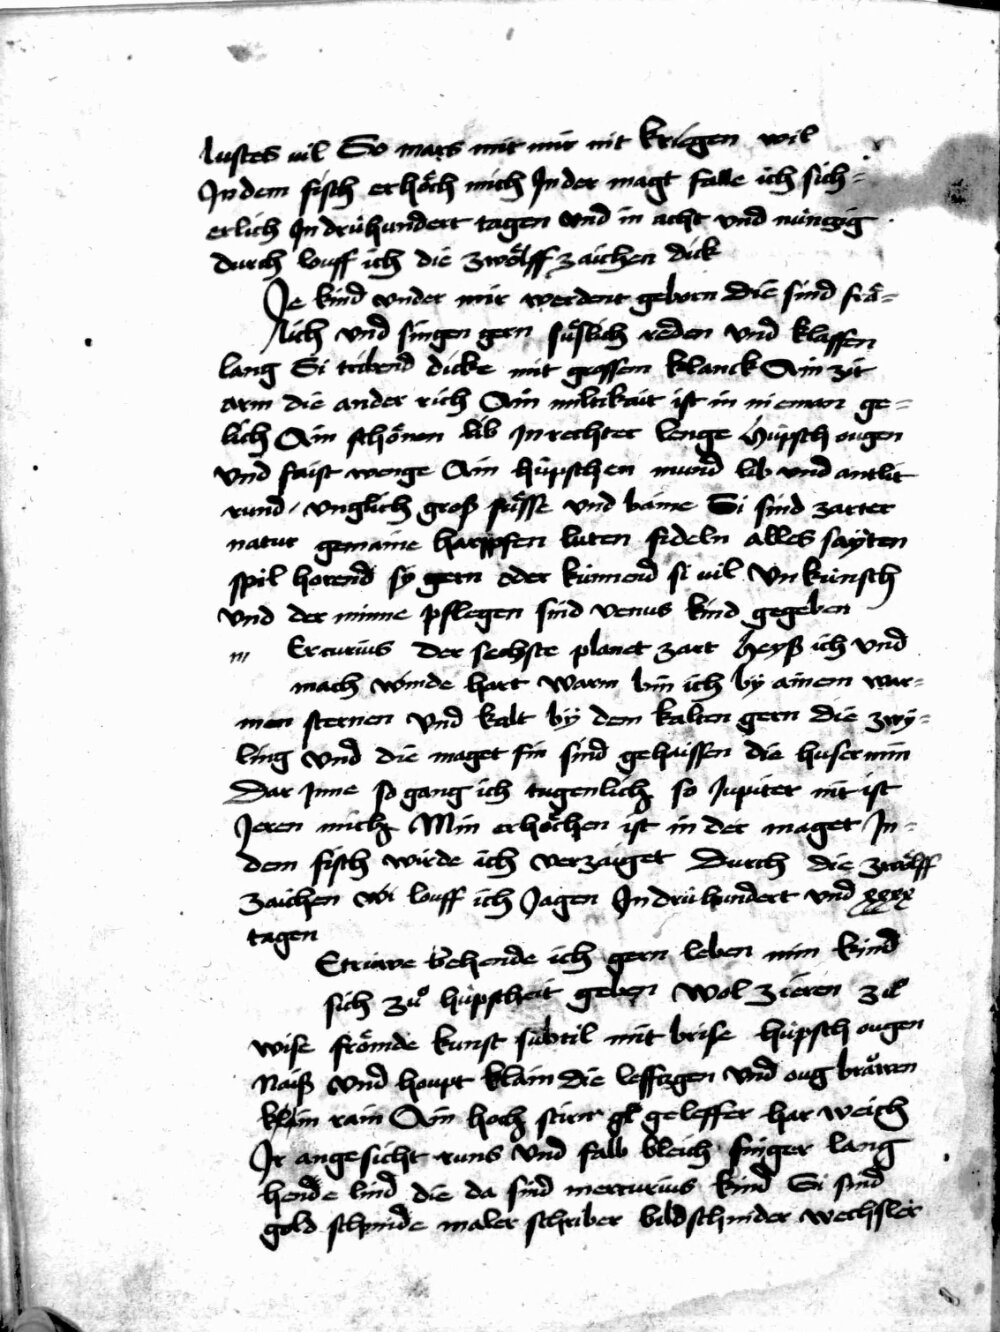 lustes vil So mars mit mir nit kriegen wil
In dem fisch erhöch mich In der magt falle ich sich-
erlich In drühundert tagen vnd in acht vnd nünczig
durch louff ich die zwölff zaichen dick
Je kind vnder mir werdent geborn die sind frö-
lich vnd singen gern süslich reden vnd klaffen
lang Si tribend dicke mit grossem klanck Ain zit
arm die ander rich Ain miltikait ist in nieman ge-
lich Ain schönen lib In rechter lenge hüpsch ougen
vnd faist wenge Ain hüpschen mund lib vnd antlit
rund vnglich groß füsse vnd baine Si sind zarter
natur gemaine harpfen luten fideln alles sayten
spil horend sy gern oder künnend si vil Vnkünsch
vnd der minne pflegen sind venus kind gegeben
m Ercurius der sechste planet zart heyß ich vnd
mach winde hart warm bin ich by ainem war-
men sternen vnd kalt by dem kalten gern die zwy-
ling vnd die maget fin sind gehaissen die huser min
Dar Inne so gang ich tugenlich so Jupiter nit ist
Jeren mich Min erhöchen ist in der maget In-
dem fisch wirde ich verzaget Durch die zwölff
zaichen wi louff ich Jagen In drühundert vnd xxxx
tagen
behende ich gern leben min kind
sich zů hüpscheit geben wol zieren
wise frömde kunst subtil mit brise hüpsch ougen
Naiß vnd houpt klain die leffczgen vnd oug brawen
klain rain Ain hoch stirn geleffer har weich
Ir angesicht runs vnd falb bleich finger lang
hende lind die da sind mercurius kind Si sind
gold schmide maler schriber bildschnider wechsler